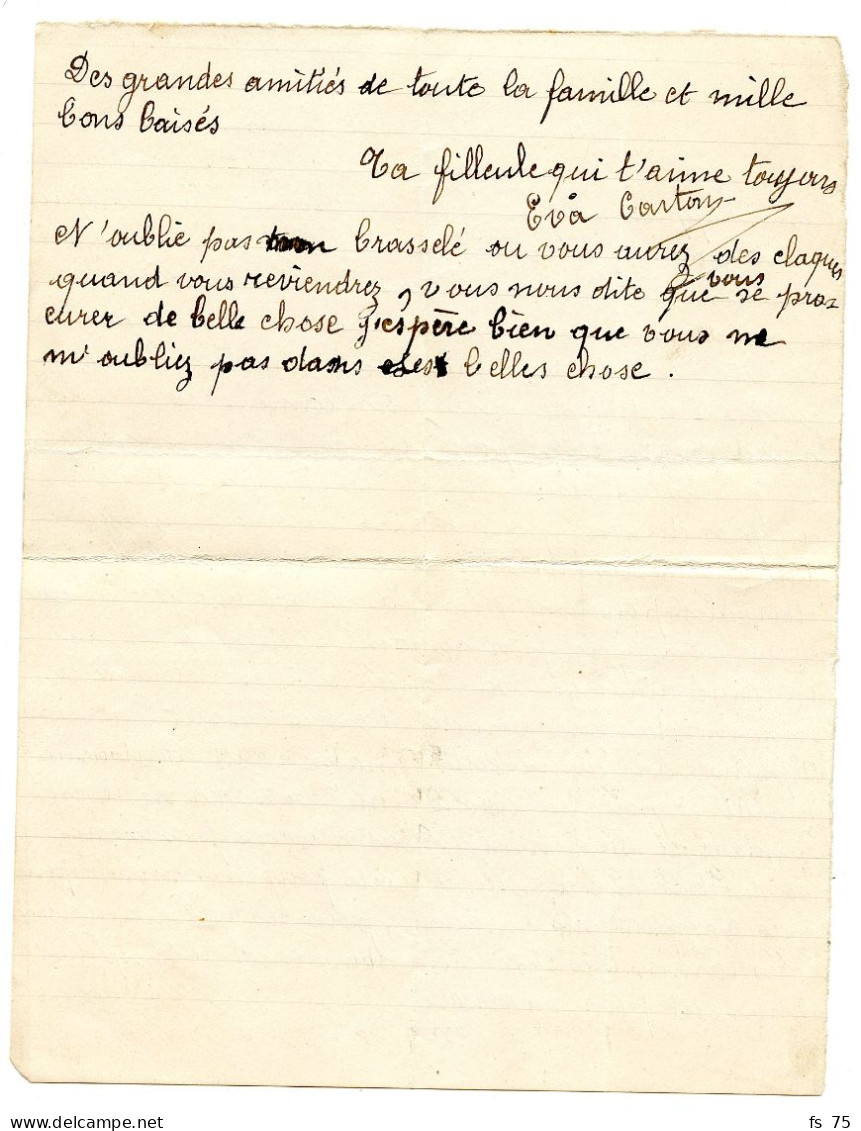 Des grandes amitiés de toute la famille et mille
bons baisés
Ta filleule qui t'aime toujours
Eva Carton
N'oublie pas mon brasselé ou vous aurez des claques
quand vous reviendrez, vous nous dite que vous se pro=
curer de belle chose j'espère bien que vous ne
m'oubliez pas dans ces belles chose.
fs 75